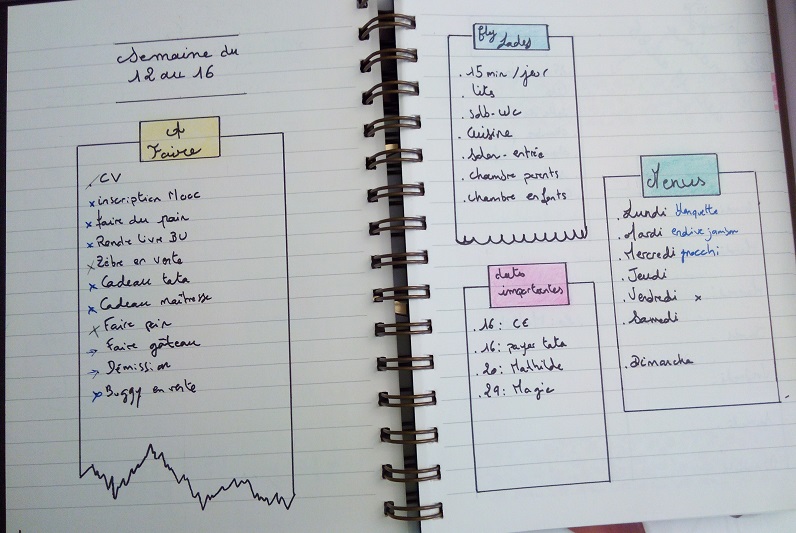 Semaine du
12 au 16
A
Faire
CV
inscription Mooc
faire du pain
Rendre livre BU
Zèbre en vente
Cadeau tata
Cadeau maîtresse
Faire pain
Faire gâteau
Démission
Buggy en vente
fly
Lades
15 min / jour
lits
sdb-wc
Cuisine
Salon-entrée
chambre parents
chambre enfants
dates
importantes
16: CE
16: payer tata
20: Mathilde
29: Magie
Menus
Lundi blanquette
Mardi endive jambon
Mercredi gnocchi
Jeudi
Vendredi x
Samedi
Dimanche